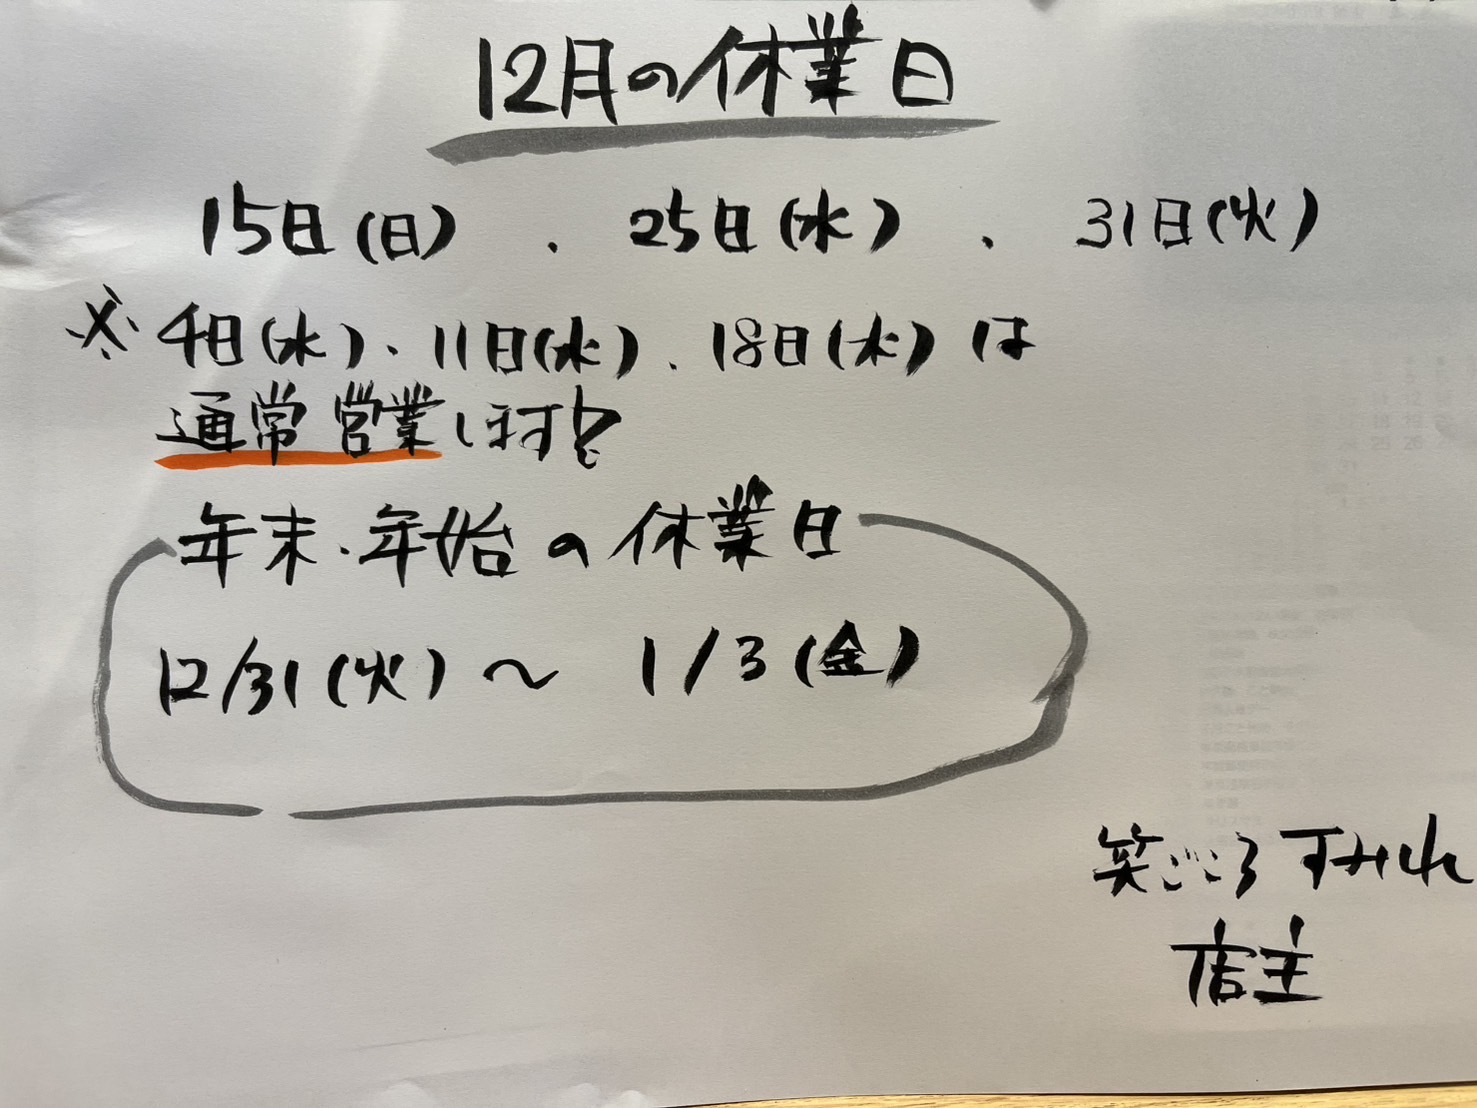 12月の休業日
15日(日)、25日(水)、31日(火)
※4日(水)、11日(水)、18日(水)は
通常営業します!
年末・年始の休業日
12/31(火)〜 1/3(金)
笑ごころ すみれ
店主